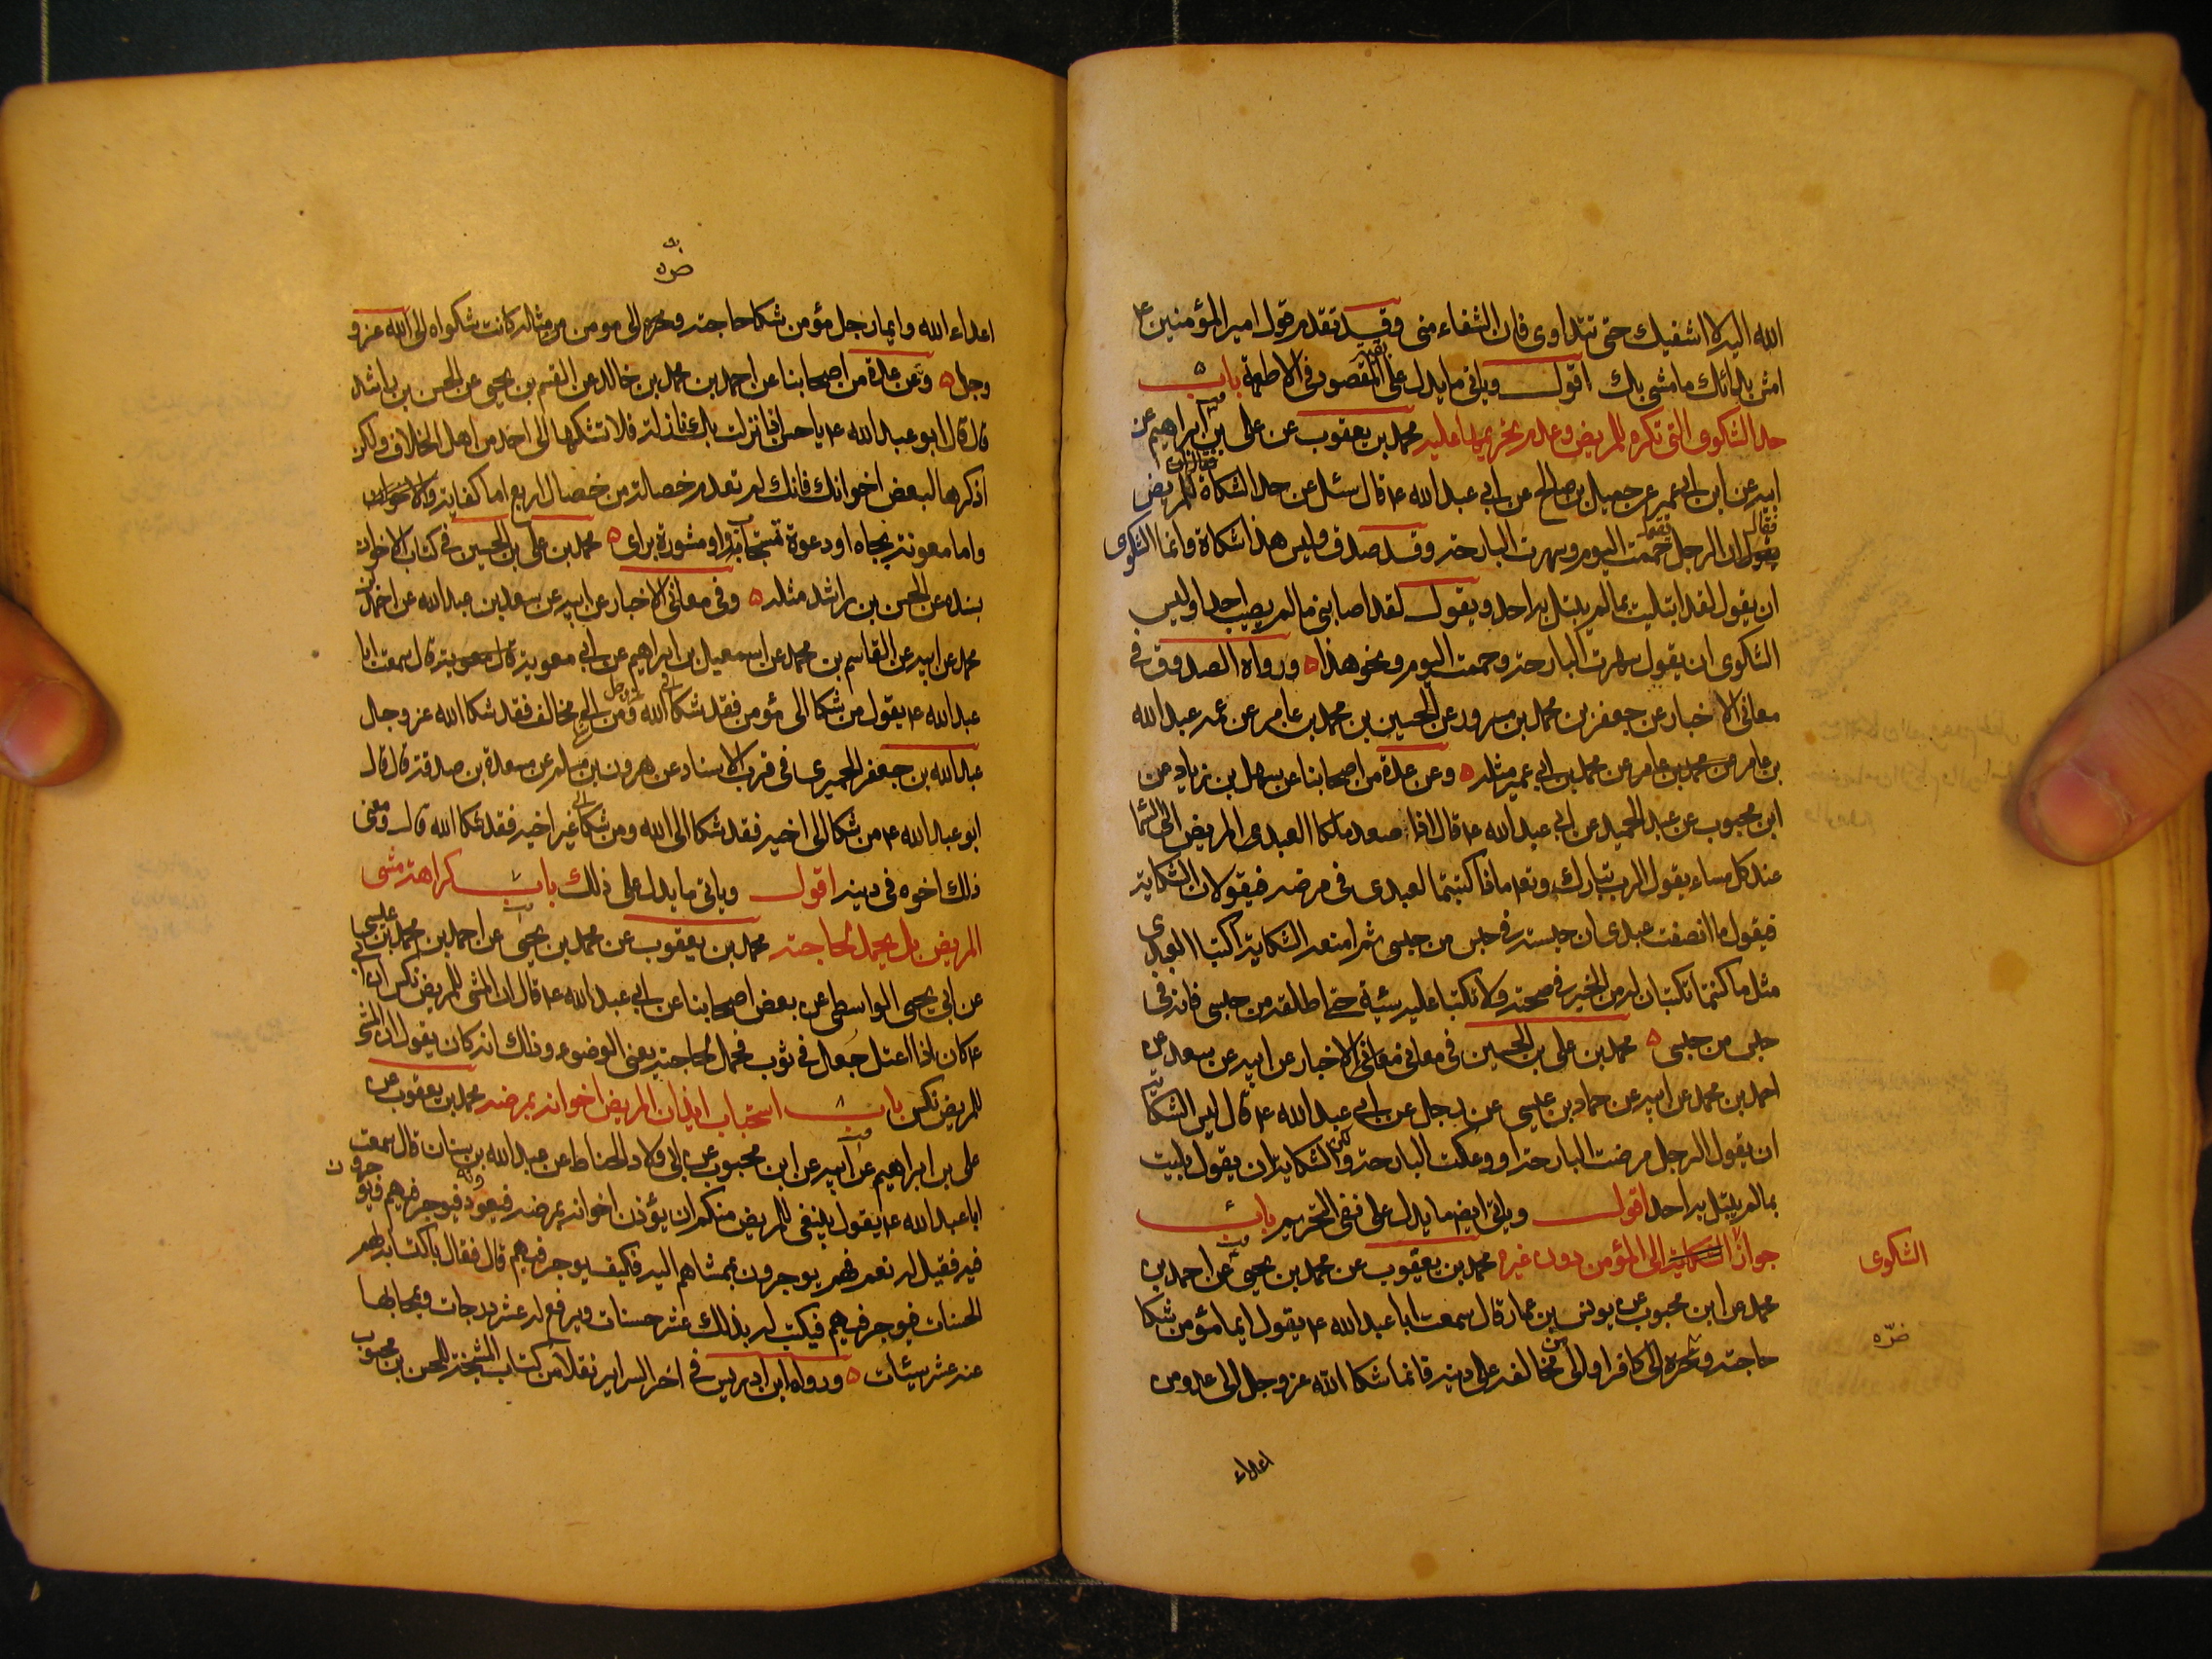 الله اليه لا اشفيك حتى تتداوى فان الشفاء منى وقد تقدم قول امير المؤمنين ع
امش بدائك ما مشى بك اقول وياتى ما يدل على المقصود فى الاطعمة باب ٥
حد الشكوى التى تكره للمريض وعدم تحريمها عليه محمد بن يعقوب عن على بن ابراهيم عن
ابيه عن ابن ابى عمير عن جميل بن صالح عن ابى عبد الله ع قال سئل عن حد الشكاة للمريض
فقال ان الرجل يقول حممت اليوم وسهرت البارحة وقد صدق وليس هذا شكاة وانما الشكوى
ان يقول لقد ابتليت بما لم يبتل به احد ويقول لقد اصابنى ما لم يصب احدا وليس
الشكوى ان يقول سهرت البارحة وحممت اليوم ونحو هذا ورواه الصدوق فى
معانى الاخبار عن جعفر بن محمد بن مسرور عن الحسين بن محمد بن عامر عن عمه عبد الله
بن عامر عن محمد بن ابى عمير مثله وعن عدة من اصحابنا عن سهل بن زياد عن
ابن محبوب عن عبد الحميد عن ابى عبد الله ع قال اذا صعد ملكا العبد المريض الى السما
عند كل مساء يقول الرب تبارك وتع ماذا كتبتما لعبدى فى مرضه فيقولان الشكاية
فيقول ما انصفت عبدى ان حبسته فى حبس من حبسى ثم امنعه الشكاية اكتبا لعبدى
مثل ما كنتما تكتبان له من الخير فى صحته ولا تكتبا عليه سيئة حتى اطلقه من حبسى فانه فى
حبس من حبسى محمد بن على بن الحسين فى معانى الاخبار عن ابيه عن سعد عن
احمد بن محمد عن ابيه عن حماد بن عيسى عن رجل عن ابى عبد الله ع قال ليس الشكاية
ان يقول الرجل مرضت البارحة او وعكت البارحة ولكن الشكاية ان يقول بليت
بما لم يبتل به احد اقول وياتى ايضا ما يدل على نفى التحريم باب ٦
جواز الشكوى الى المؤمن دون غيره محمد بن يعقوب عن محمد بن يحيى عن احمد بن
محمد عن ابن محبوب عن يونس بن عمار قال سمعت ابا عبد الله ع يقول ايما مؤمن شكا
حاجته وضره الى كافر او الى من يخالفه على دينه فانما شكا الله عز وجل الى عدو من
الشكوى
ضرّه
اعداء
ضره
اعداء الله وايما رجل مؤمن شكا حاجته وضره الى مومن مثله كانت شكواه الى الله عز و
وجل وعن عدة من اصحابنا عن احمد بن محمد بن خالد عن القسم بن يحيى عن الحسن بن راشد
قال قال ابو عبد الله ع يا حسن اذا نزلت بك نازلة فلا تشكها الى احد من اهل الخلاف ولكن
اذكرها لبعض اخوانك فانك لم تعدم خصلة من خصال اربع اما كفاية
واما معونة بجاه او دعوة تستجاب او مشورة براى محمد بن على بن الحسين فى كتاب الاخوان
بسنده عن الحسن بن راشد مثله وفى معانى الاخبار عن ابيه عن سعد بن عبد الله عن احمد بن
محمد عن ابيه عن القاسم بن محمد عن اسمعيل بن ابراهيم عن ابى معوية قال سمعت ابا
عبد الله ع يقول من شكا الى مؤمن فقد شكا الى الله عز وجل ومن شكا الى مخالف فقد شكا الله عز وجل
عبد الله بن جعفر الحميرى فى قرب الاسناد عن هرون بن مسلم عن مسعدة بن صدقة قال قال
ابو عبد الله ع من شكا الى اخيه فقد شكا الى الله ومن شكا الى غير اخيه فقد شكا الله قال ومعنى
ذلك اخوه فى دينه اقول وياتى ما يدل على ذلك باب ٧ كراهة مشى
المريض بل يحمل لحاجته محمد بن يعقوب عن محمد بن يحيى عن احمد بن محمد بن عيسى
عن ابى يحيى الواسطى عن بعض اصحابنا عن ابى عبد الله ع قال ان المشى للمريض نكس ان ابى
ع كان اذا اعتل جعل فى ثوب فحمل لحاجته يعنى الوضوء وذلك انه كان يقول ان المشى
للمريض نكس باب ٨ استحباب ايذان المريض اخوانه بمرضه محمد بن يعقوب عن
على بن ابراهيم عن ابيه عن ابن محبوب عن ابى ولاد الحناط عن عبد الله بن سنان قال سمعت
ابا عبد الله ع يقول ينبغى للمريض منكم ان يؤذن اخوانه بمرضه فيعودونه فيوجر فيهم فيؤجرون
فيه فقيل له نعم فهم يوجرون بممشاهم اليه فكيف يوجر فيهم قال فقال باكتسابه لهم
الحسنات فيوجر فيهم فيكتب له بذلك عشر حسنات ويرفع له عشر درجات ويمحا بها
عنه عشر سيئات ورواه ابن ادريس فى اخر السراير نقلا من كتاب المشيخة للحسن بن محبوب